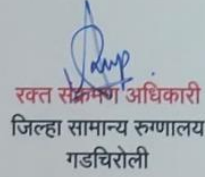 रक्त संक्रमण अधिकारी
जिल्हा सामान्य रुग्णालय
गडचिरोली